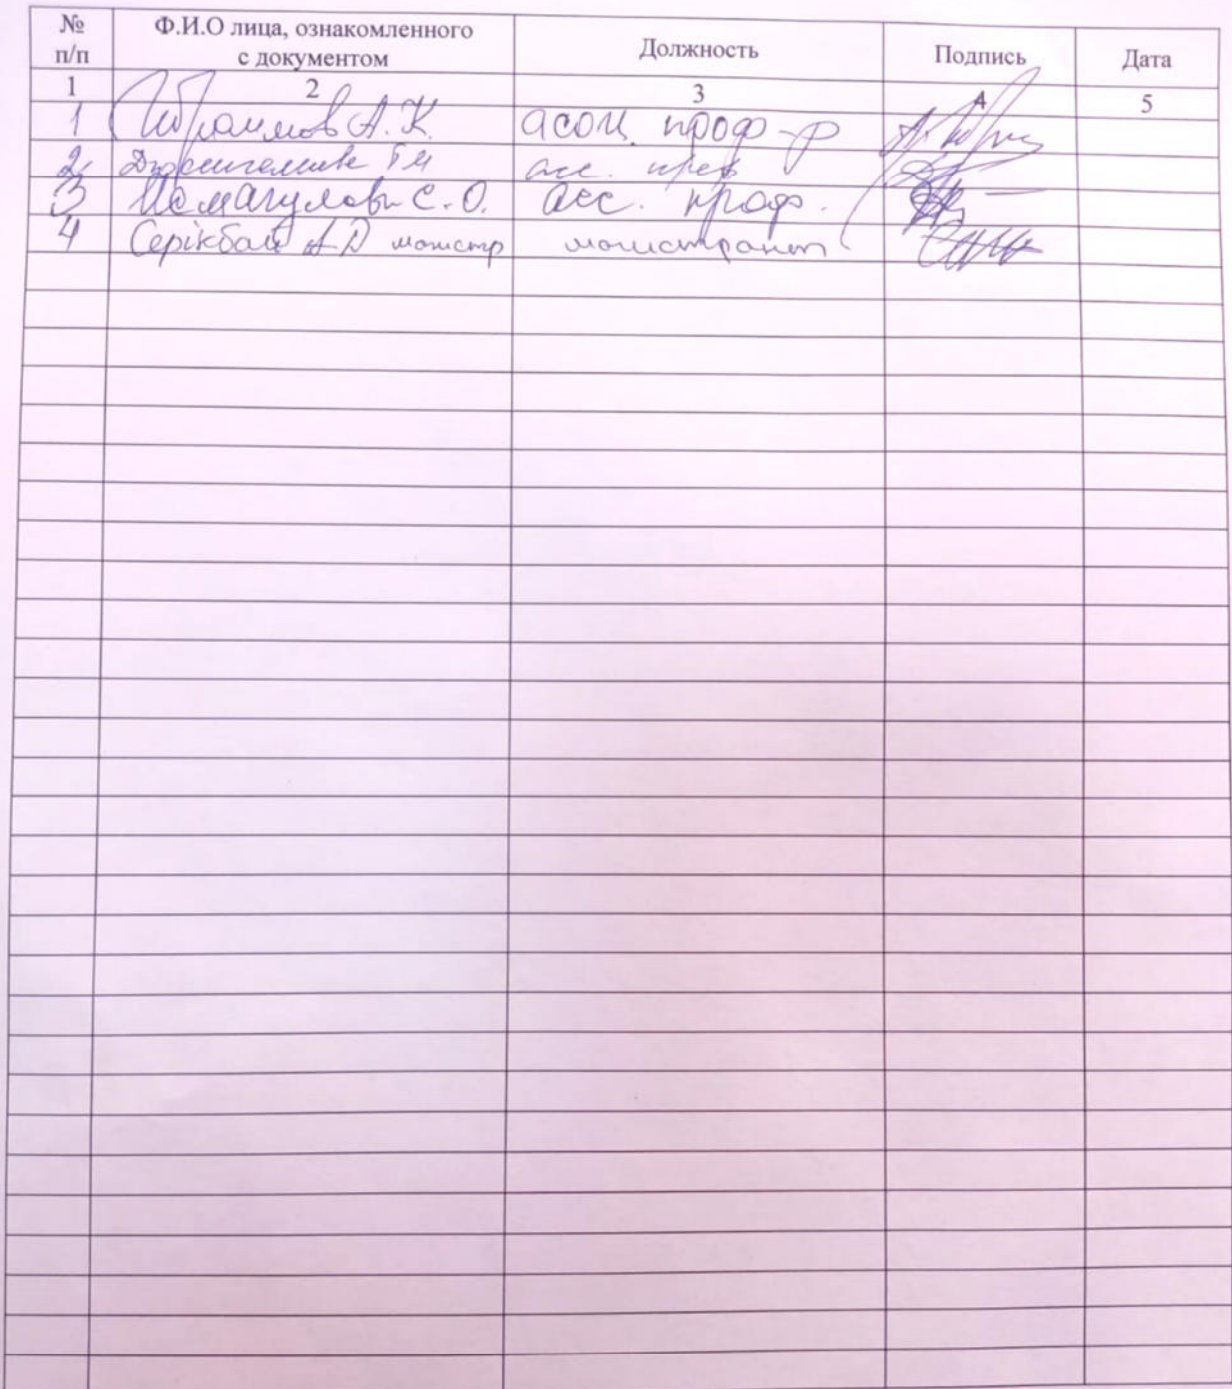 № п/п Ф.И.О лица, ознакомленного с документом Должность Подпись Дата
1 2 3 4 5
1 Ибраимов А.К. асоц. проф-р
2 асс. проф
3 Исмагулова С.О. асс. проф.
4 Серікбай А Д магистр магистрант